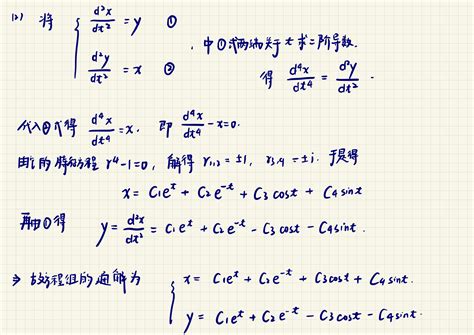 (2) 将 { d²x/dt² = y ①
d²y/dt² = x ②
中①式两端关于 t 求二阶导数.
得 d⁴x/dt⁴ = d²y/dt².
代入②式得 d⁴x/dt⁴ = x. 即 d⁴x/dt⁴ - x = 0.
由的特征方程 r⁴-1=0, 解得 r₁,₂ = ±1, r₃,₄ = ±i. 于是得
x = C₁eᵗ + C₂e⁻ᵗ + C₃cost + C₄sint
再由①得 y = d²x/dt² = C₁eᵗ + C₂e⁻ᵗ - C₃cost - C₄sint.
⇒ 故方程组的通解为 { x = C₁eᵗ + C₂e⁻ᵗ + C₃cost + C₄sint.
y = C₁eᵗ + C₂e⁻ᵗ - C₃cost - C₄sint.